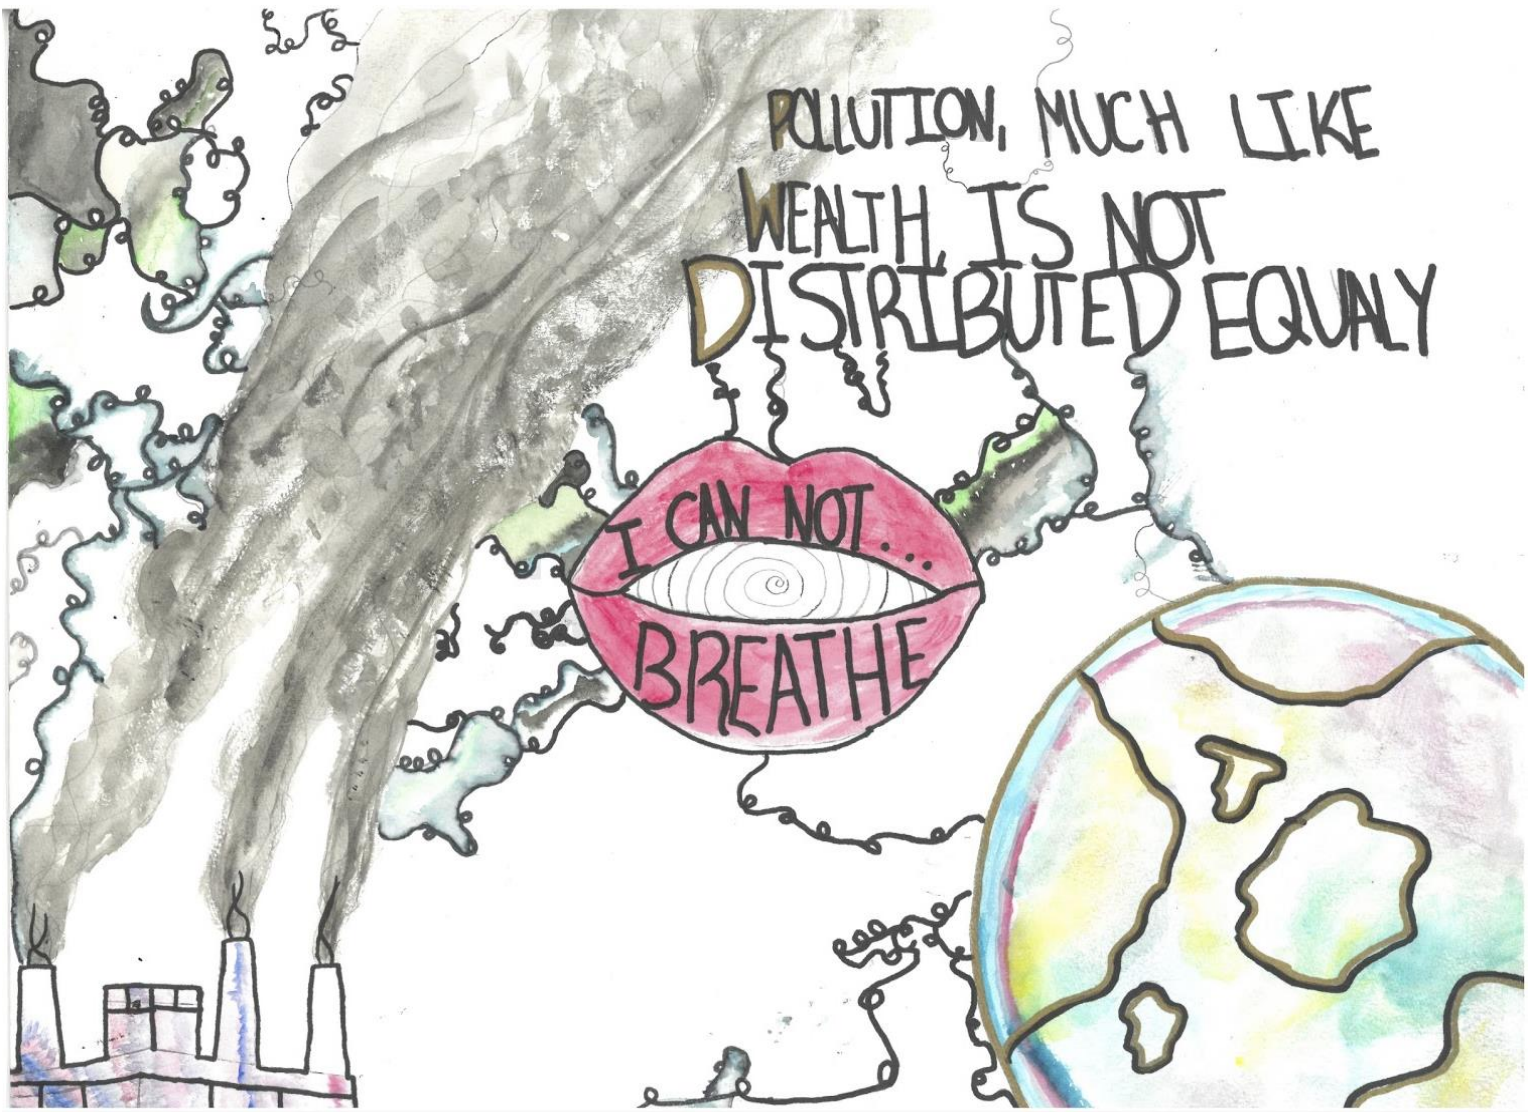 POLLUTION, MUCH LIKE
WEALTH, IS NOT
DISTRIBUTED EQUALY
I CAN NOT...
BREATHE